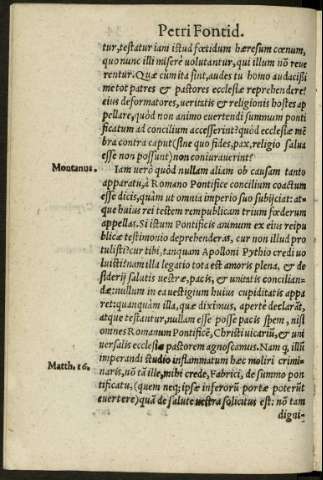 Petri Fontid.
tur, testatur iam istud fœtidum hæresum cœnum,
quo nunc illi miserè uolutantur, qui illum nō reue
rentur. Quæ cùm ita sint, audes tu homo audacissi
me tot patres & pastores ecclesiæ reprehendere?
eius deformatores, ueritatis & religionis hostes ap
pellare, quòd non animo euertendi summum ponti
ficatum ad concilium accesserint? quòd ecclesiæ mē
bra contra caput (sine quo fides, pax, religio salua
esse non possunt) non coniurauerint?
Montanus.
Iam verò quòd nullam aliam ob causam tanto
apparatu, à Romano Pontifice concilium coactum
esse dicis, quàm ut omnia imperio suo subijciat: at-
que huius rei testem rempublicam trium fœderum
appellas. Si istum Pontificis animum ex eius reipu
blicæ testimonio deprehenderas, cur non illud pro
tulisti? cur tibi, tanquam Apollini Pythio credi uo
luisti? nam illa legatio tota est amoris plena, & de
siderij salutis uestræ, pacis, & unitatis concilian-
dæ: nullum in ea uestigium huius cupiditatis appa
ret: quanquàm illa, quæ diximus, apertè declarāt,
atque testantur, nullam esse posse pacis spem, nisi
omnes Romanum Pontificē, Christi uicariū, & uni
uersalis ecclesiæ pastorem agnoscamus. Nam q, illū
imperandi studio inflammatum hæc moliri crimi-
Matth. 16.
naris, nō tā ille, mihi crede, Fabrici, de summo pon
tificatu, (quem neq; ipsæ inferorū portæ poterūt
euertere) quā de salute uestra solicitus est: nō tam
digni-